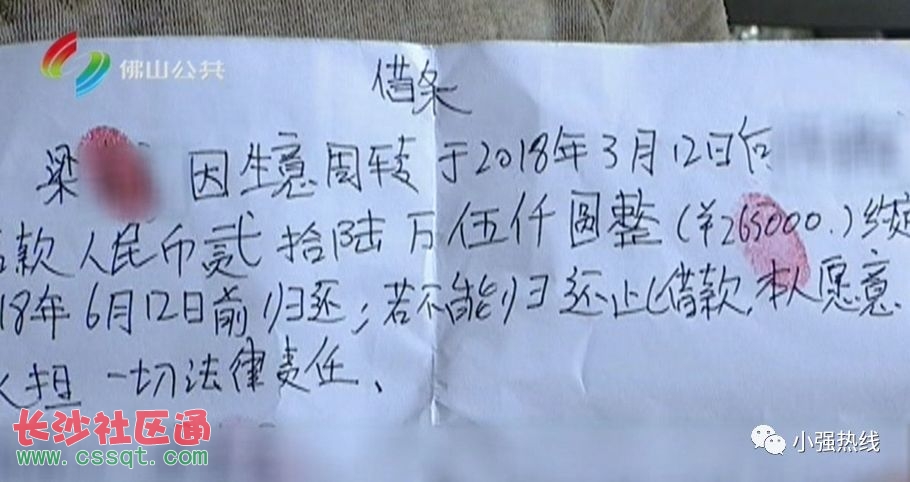 佛山公共
借条
梁 因生意周转于2018年3月12日向
款人民币贰拾陆万伍仟圆整(¥265000.)约定
18年6月12日前归还;若不能归还此借款,本人愿意
担一切法律责任、
长沙社区通
www.cssqt.com
小强热线